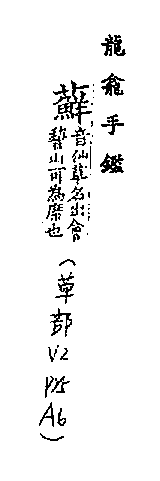 龍龕手鑑
蘚音仙草名出會
稽山可為席也
(草部
V2
P25
A6)